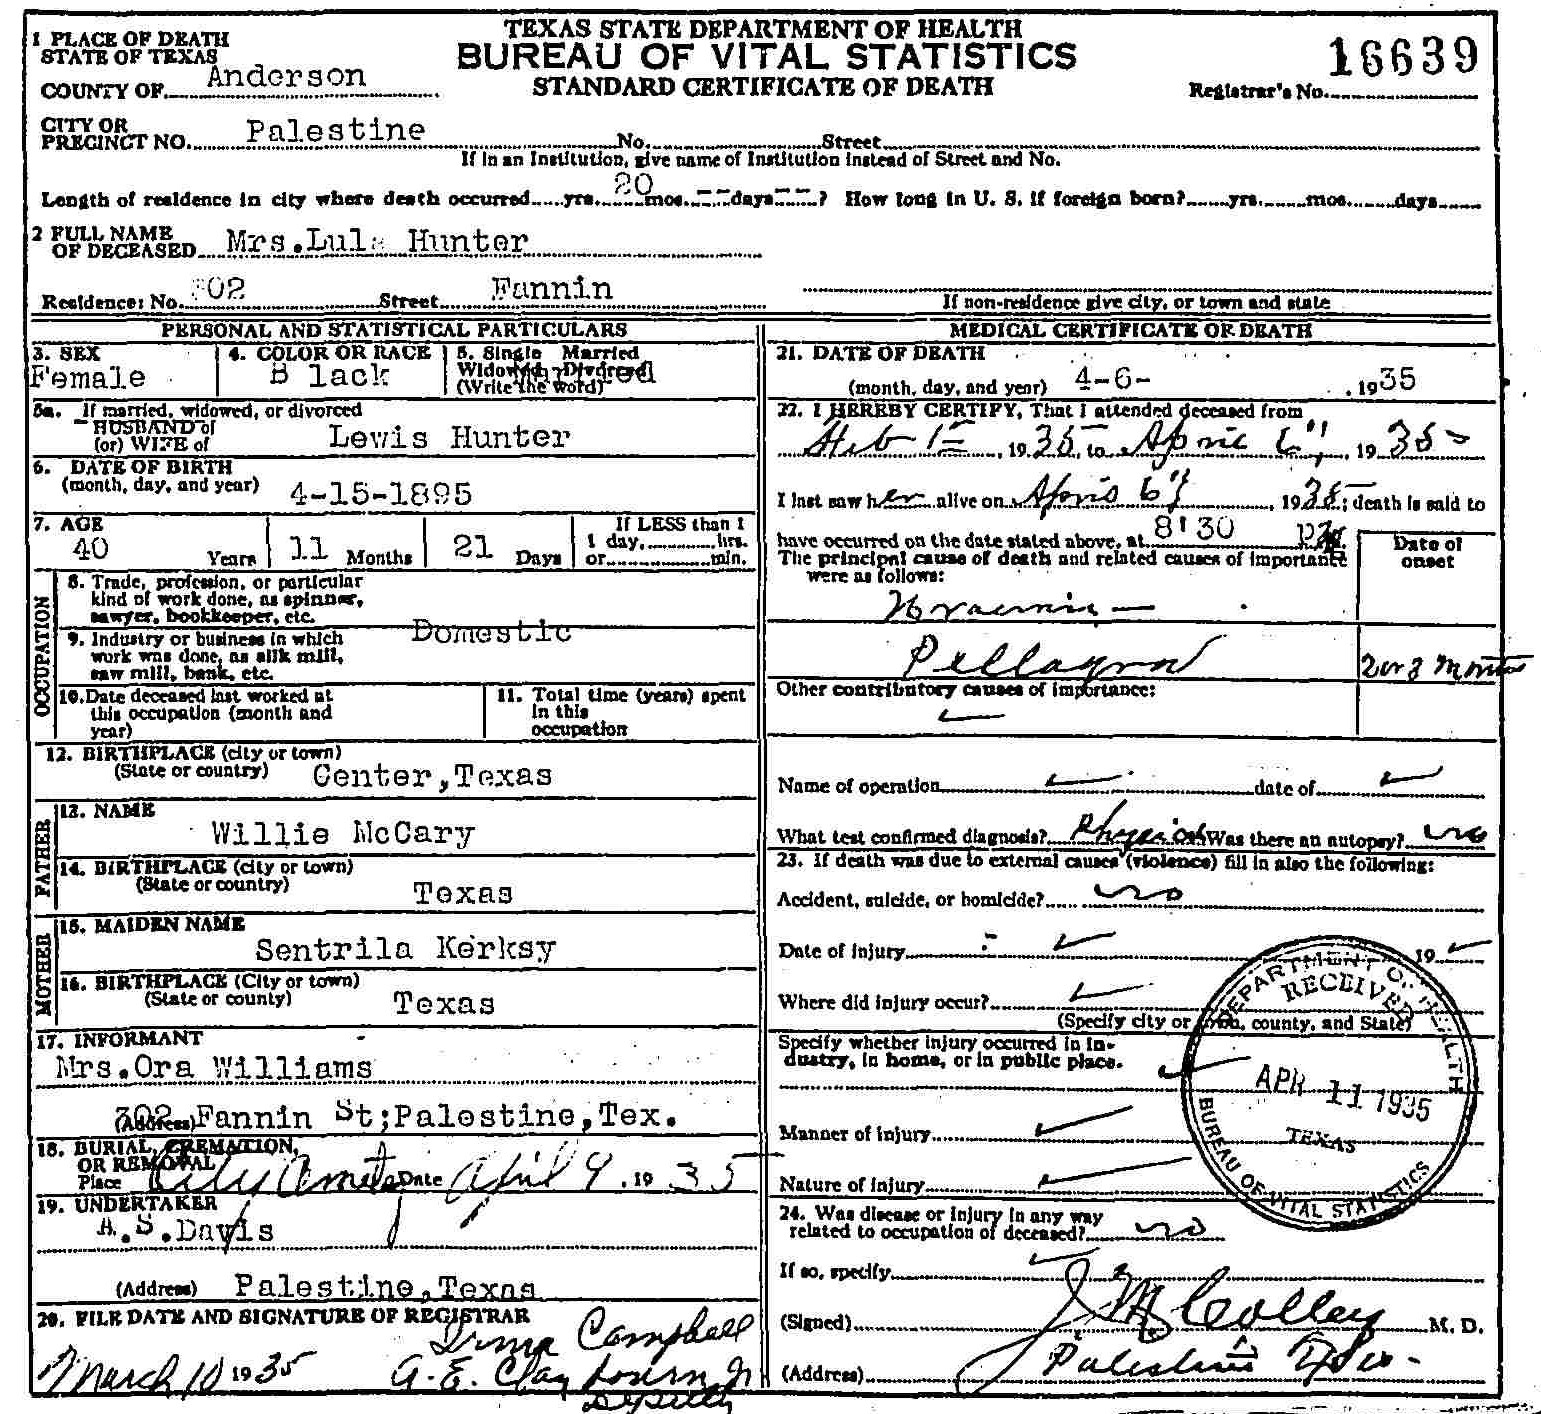 TEXAS STATE DEPARTMENT OF HEALTH
BUREAU OF VITAL STATISTICS
STANDARD CERTIFICATE OF DEATH
16639
Registrar's No.
1 PLACE OF DEATH
STATE OF TEXAS
COUNTY OF Anderson
CITY OR
PRECINCT NO. Palestine No. Street
If in an Institution, give name of Institution instead of Street and No.
Length of residence in city where death occurred yrs. 20 mos. -- days -- ? How long in U. S. if foreign born? yrs. mos. days
2 FULL NAME
OF DECEASED Mrs.Lula Hunter
Residence: No. 02 Street Fannin
If non-residence give city, or town and state
PERSONAL AND STATISTICAL PARTICULARS
3. SEX
Female
4. COLOR OR RACE
B lack
5. Single Married
Widowed Divorced
(Write the word)
5a. If married, widowed, or divorced
HUSBAND of
(or) WIFE of Lewis Hunter
6. DATE OF BIRTH
(month, day, and year) 4-15-1895
7. AGE
40 Years 11 Months 21 Days
If LESS than 1
1 day, hrs.
or min.
OCCUPATION
8. Trade, profession, or particular
kind of work done, as spinner,
sawyer, bookkeeper, etc.
Domestic
9. Industry or business in which
work was done, as silk mill,
saw mill, bank, etc.
10. Date deceased last worked at
this occupation (month and
year)
11. Total time (years) spent
in this
occupation
12. BIRTHPLACE (city or town)
(State or country) Center,Texas
FATHER
13. NAME
Willie McCary
14. BIRTHPLACE (city or town)
(State or country) Texas
MOTHER
15. MAIDEN NAME
Sentrila Kerksy
16. BIRTHPLACE (City or town)
(State or county) Texas
17. INFORMANT
Mrs.Ora Williams
(Address) 302 Fannin St;Palestine,Tex.
18. BURIAL, CREMATION,
OR REMOVAL
Place City Date April 9, 1935
19. UNDERTAKER
A.S.Davis
(Address) Palestine,Texas
20. FILE DATE AND SIGNATURE OF REGISTRAR
Irma Campbell
March 10 1935 A. E. Claybourn Jr
Deputy
MEDICAL CERTIFICATE OF DEATH
21. DATE OF DEATH
(month, day, and year) 4-6- , 1935
22. I HEREBY CERTIFY, That I attended deceased from
Feb 1st, 1935, to April 6", 1935
I last saw her alive on April 6", 1935; death is said to
have occurred on the date stated above, at 8'30 Pm.
The principal cause of death and related causes of importance
were as follows:
Date of
onset
Uraemia
Pellagra 2 or 3 months
Other contributory causes of importance:
Name of operation date of
What test confirmed diagnosis? Physical Was there an autopsy? no
23. If death was due to external causes (violence) fill in also the following:
Accident, suicide, or homicide? no
Date of injury 19
Where did injury occur?
(Specify city or town, county, and State)
Specify whether injury occurred in in-
dustry, in home, or in public place.
Manner of injury
Nature of injury
24. Was disease or injury in any way
related to occupation of deceased? no
If so, specify
(Signed) J M Colley M. D.
(Address) Palestine Texas
DEPARTMENT OF HEALTH
RECEIVED
APR 11 1935
TEXAS
BUREAU OF VITAL STATISTICS